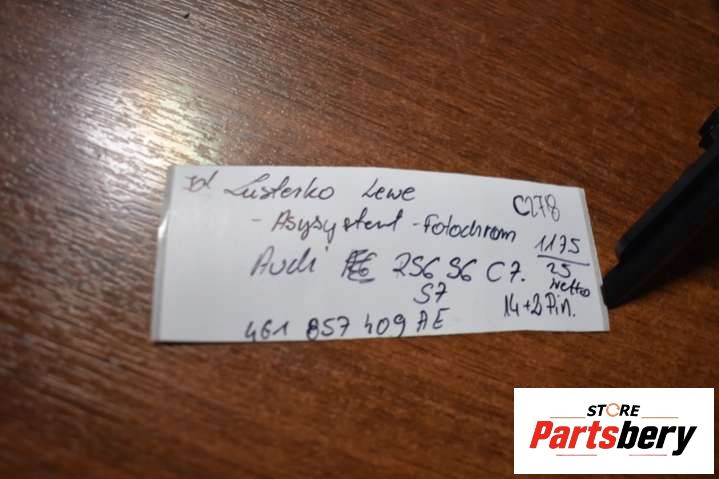 Lusterko Lewe
C278
- Asysystent - Fotochrom
1175
25
netto
Audi RS6 S6 C7.
S7
14+2 Pin.
4G1 857 409 AE
STORE
Partsbery